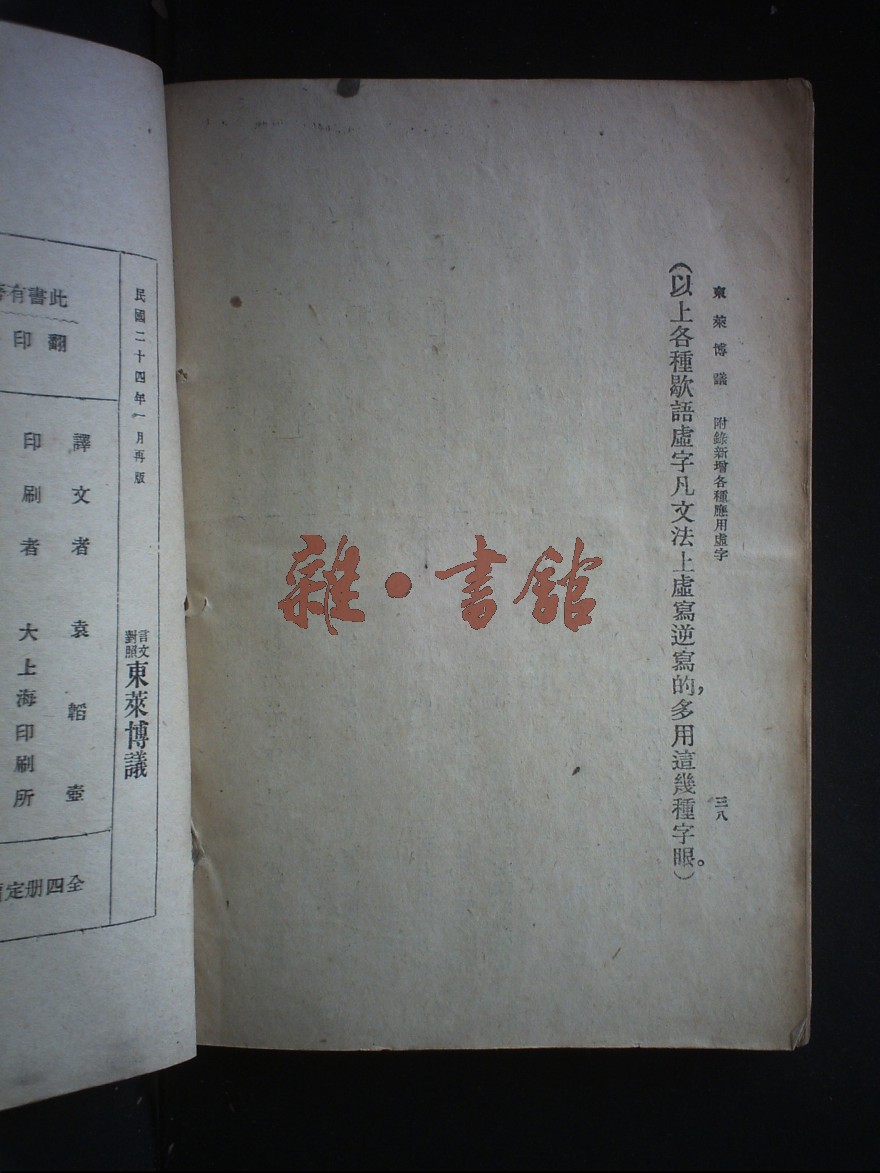 東萊博議 附錄新增各種應用虛字 三八
（以上各種歇語虛字凡文法上虛寫逆寫的，多用這幾種字眼。）
雜·書館
民國二十四年一月再版
言文對照 東萊博議
此書有
翻印
譯文者 袁韜壺
印刷者 大上海印刷所
全四册定